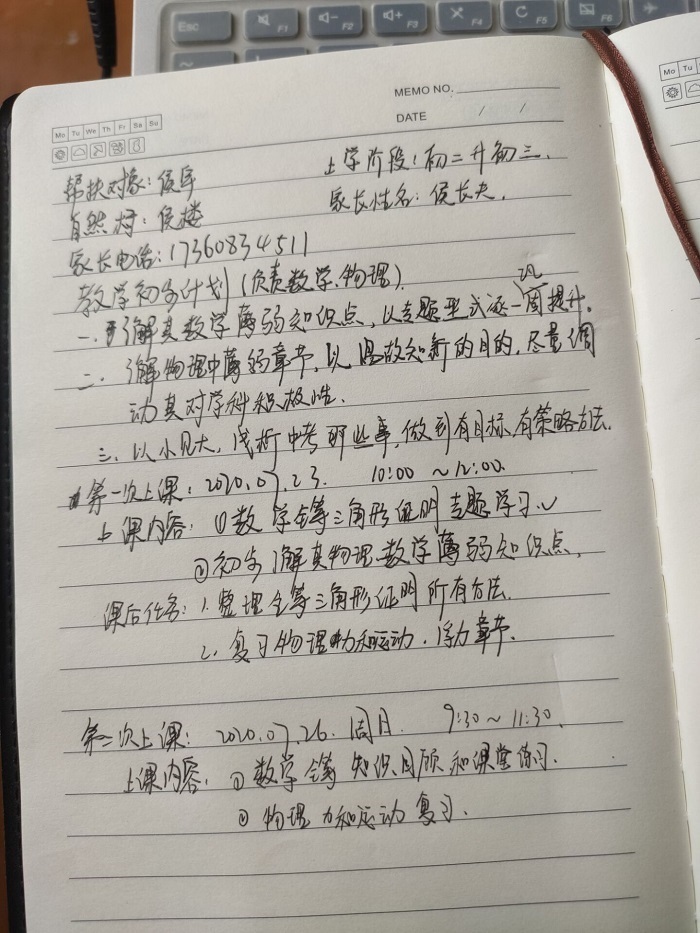 Esc F1 F2 F3 F4 F5 F6 F7
MEMO NO.
DATE / /
Mo Tu We Th Fr Sa Su
Mo Tu
帮扶对象：侯
上学阶段：初二升初三.
自然村：侯楼
家长性名：侯长夫.
家长电话：17360834511
教学初步计划(负责数学.物理).
一.了解其数学薄弱知识点，以专题型式逐一巩固提升.
二.了解物理中薄弱章节，以温故知新的目的，尽量调
动其对学科积极性.
三.以小见大，浅析中考那些事，做到有目标，有策略方法.
第一次上课：2020.07.23. 10:00 ~12:00.
上课内容：①数学全等三角形证明专题学习.✓
②初步了解其物理.数学薄弱知识点.
课后任务：1.整理全等三角形证明所有方法.
2.复习物理力和运动.浮力章节.
第二次上课：2020.07.26.周日. 9:30~11:30.
上课内容：①数学全等知识回顾和课堂练习.
②物理力和运动复习.